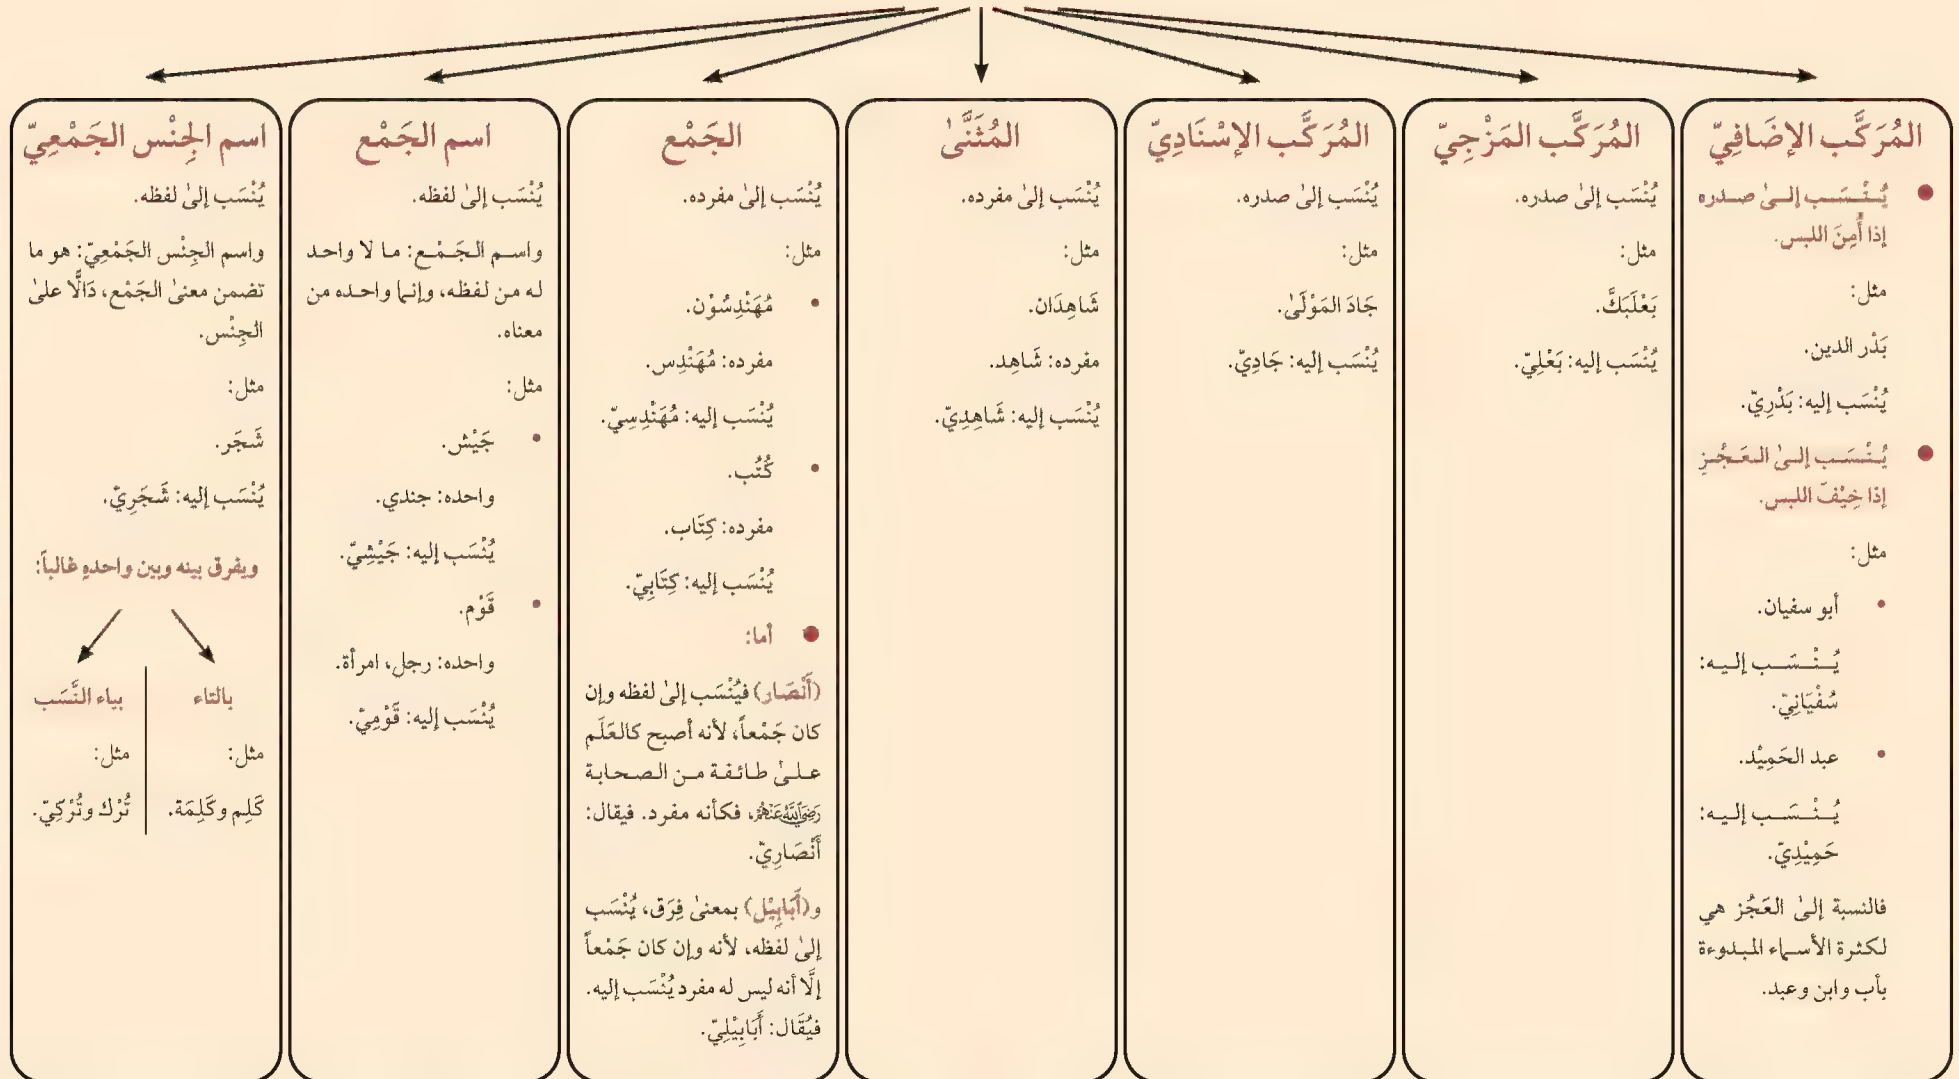 المُرَكَّب الإضَافِيّ
● يُنْسَب إلىٰ صدره
إذا أُمِنَ اللبس.
مثل:
بَدْر الدين.
يُنْسَب إليه: بَدْرِيّ.
● يُنْسَب إلىٰ العَجُزِ
إذا خِيْفَ اللبس.
مثل:
• أبو سفيان.
يُنْسَب إليه:
سُفْيَانِيّ.
• عبد الحَمِيْد.
يُنْسَب إليه:
حَمِيْدِيّ.
فالنسبة إلىٰ العَجُز هي
لكثرة الأسماء المبدوءة
بأب وابن وعبد.
المُرَكَّب المَزْجِيّ
يُنْسَب إلىٰ صدره.
مثل:
بَعْلَبَكَّ.
يُنْسَب إليه: بَعْلِيّ.
المُرَكَّب الإسْنَادِيّ
يُنْسَب إلىٰ صدره.
مثل:
جَادَ المَوْلَىٰ.
يُنْسَب إليه: جَادِيّ.
المُثَنَّىٰ
يُنْسَب إلىٰ مفرده.
مثل:
شَاهِدَان.
مفرده: شَاهِد.
يُنْسَب إليه: شَاهِدِيّ.
الجَمْع
يُنْسَب إلىٰ مفرده.
مثل:
• مُهَنْدِسُوْن.
مفرده: مُهَنْدِس.
يُنْسَب إليه: مُهَنْدِسِيّ.
• كُتُب.
مفرده: كِتَاب.
يُنْسَب إليه: كِتَابِيّ.
● أما:
(أَنْصَار) فيُنْسَب إلىٰ لفظه وإن
كان جَمْعاً، لأنه أصبح كالعَلَم
علىٰ طائفة من الصحابة
رَضِيَ اللَّهُ عَنْهُمْ، فكأنه مفرد. فيقال:
أَنْصَارِيّ.
و(أَبَابِيْل) بمعنىٰ فِرَق، يُنْسَب
إلىٰ لفظه، لأنه وإن كان جَمْعاً
إلَّا أنه ليس له مفرد يُنْسَب إليه.
فيُقَال: أَبَابِيْلِيّ.
اسم الجَمْع
يُنْسَب إلىٰ لفظه.
واسم الجَمْع: ما لا واحد
له من لفظه، وإنما واحده من
معناه.
مثل:
• جَيْش.
واحده: جندي.
يُنْسَب إليه: جَيْشِيّ.
• قَوْم.
واحده: رجل، امرأة.
يُنْسَب إليه: قَوْمِيّ.
اسم الجِنْس الجَمْعِيّ
يُنْسَب إلىٰ لفظه.
واسم الجِنْس الجَمْعِيّ: هو ما
تضمن معنىٰ الجَمْع، دَالًّا علىٰ
الجِنْس.
مثل:
شَجَر.
يُنْسَب إليه: شَجَرِيّ.
ويفرق بينه وبين واحدهِ غالباً:
بالتاء
مثل:
كَلِم وكَلِمَة.
بياء النَّسَب
مثل:
تُرْك وتُرْكِيّ.